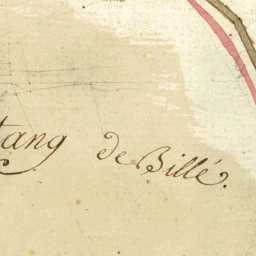 tang de Billé.